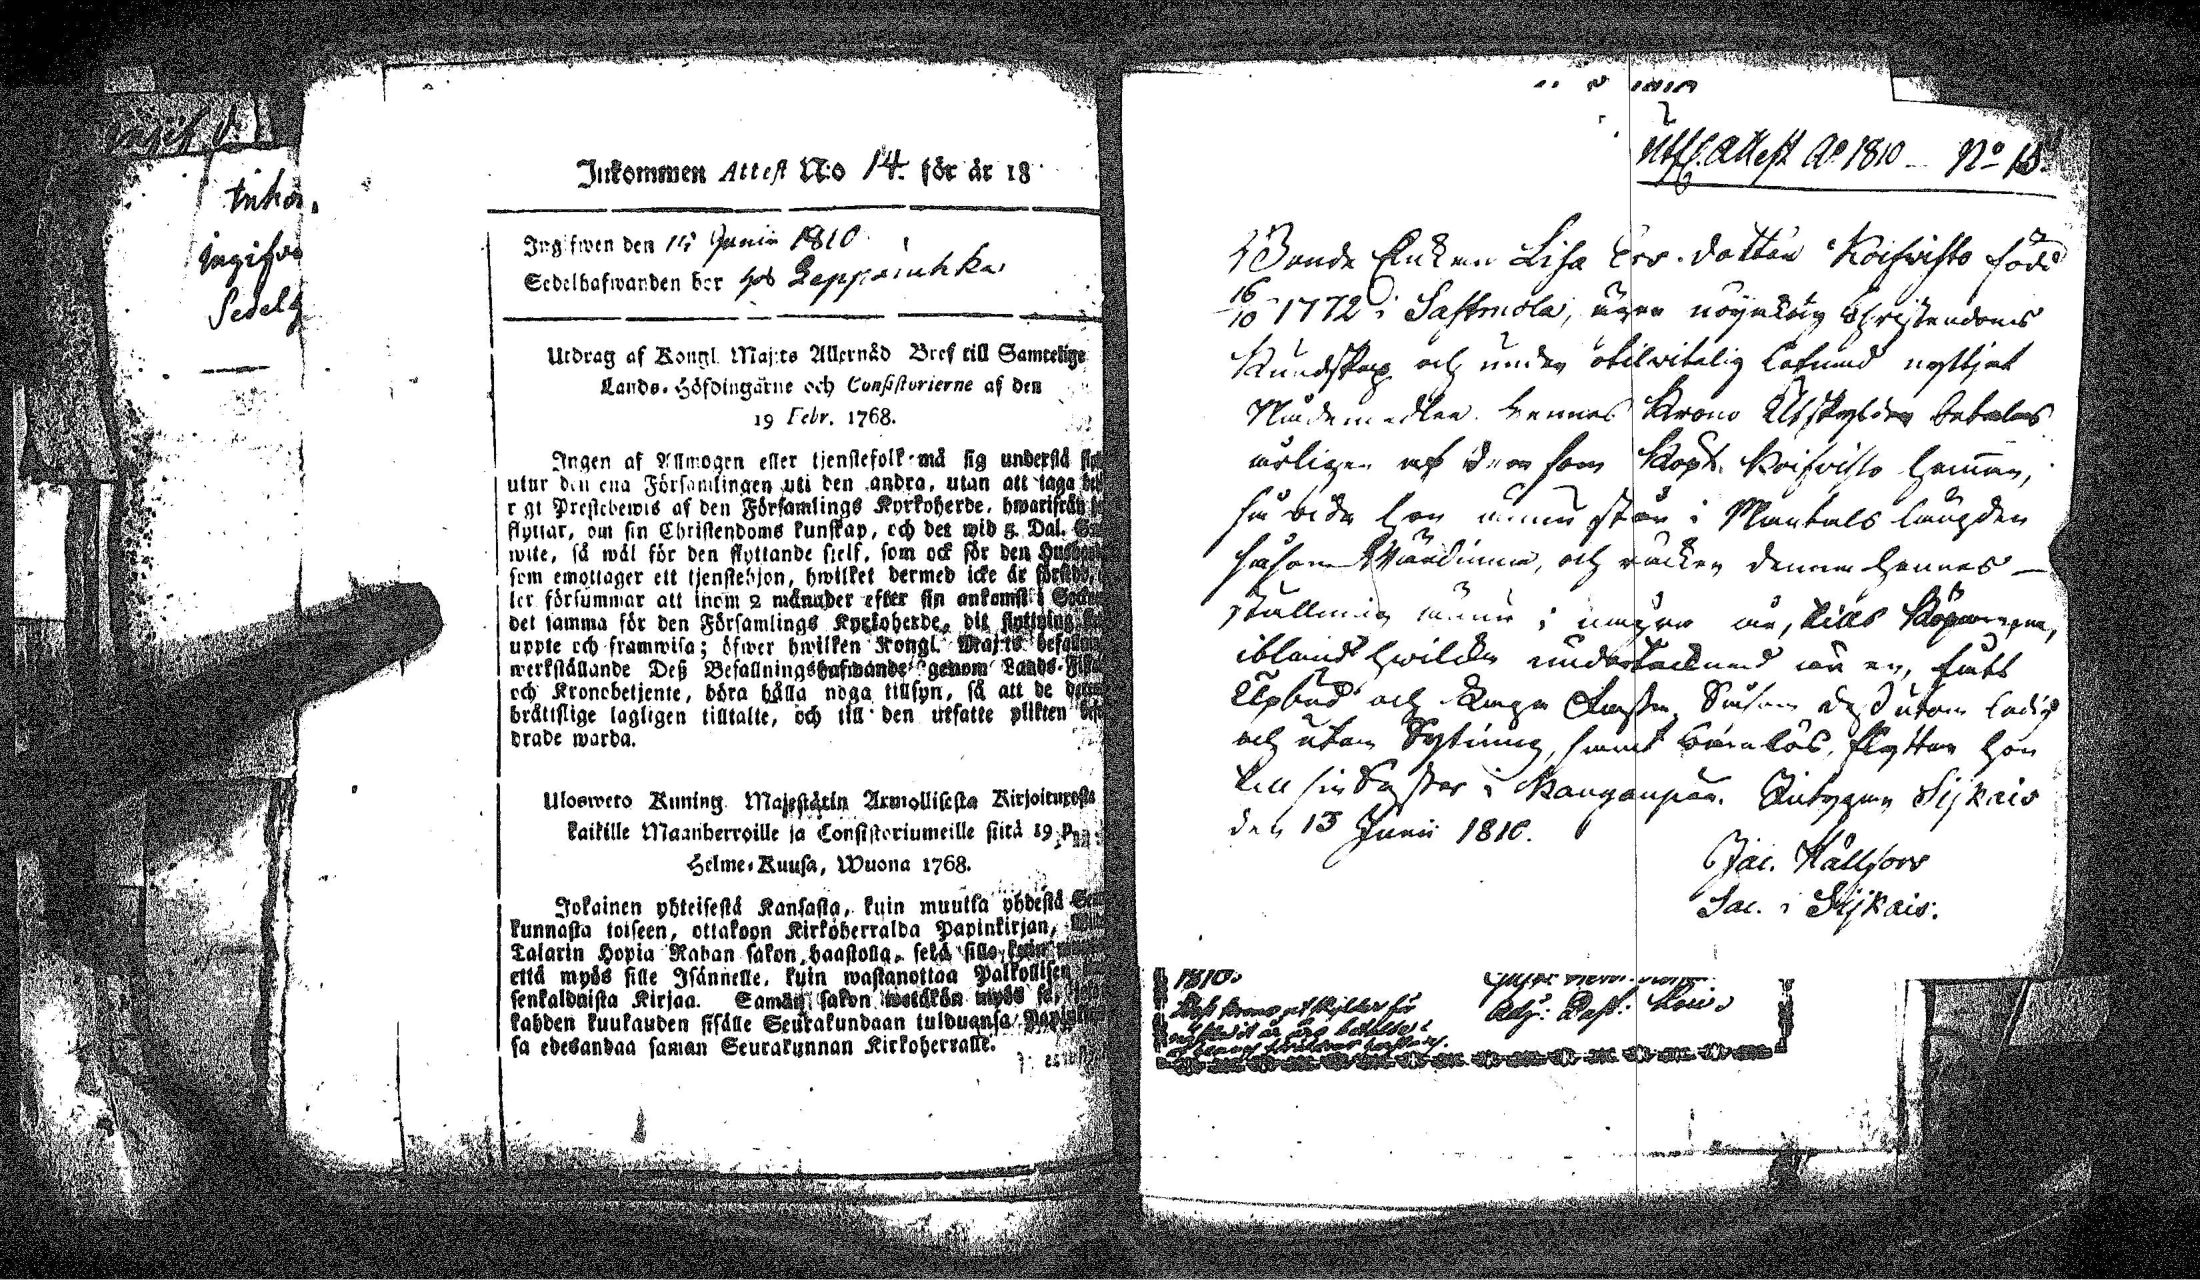 Inkom
ingifv
Sedelh
Inkommen Attest N:o 14. för år 18
Ingifwen den 15 Junii 1810
Sedelhafwanden bor hos Leppäruhka
Utdrag af Kongl. Maj:ts Allernåd Bref till Samtelige
Lands-Höfdingarne och Consistorierne af den
19 Febr. 1768.
Ingen af Allmogen eller tjenstefolk må sig understå
utur den ena Församlingen uti den andra, utan att taga
Prestebewis af den Församlings Kyrkoherde, hwarifrån
flyttar, om sin Christendoms kunskap, och det wid 5. Dal.
wite, så wäl för den flyttande sjelf, som ock för den
som emottager ett tjenstehjon, hwilket dermed icke är
ler försummar att inom 2 månader efter sin ankomst i
det samma för den Församlings Kyrkoherde, dit
uppte och framwisa; öfwer hwilken Kongl. Maj:ts
werkställande Deß Befallningshafwande genom Lands-
och Kronobetjente, böra hålla noga tillsyn, så att de
bråttslige lagligen tilltalte, och till den utsatte plikten
drade warda.
Ulosweto Kuning. Majestätin Armollisesta Kirjoituxesta
kaikille Maanherroille ja Consistoriumeille siitä 19 p:nä
Helme-Kuusa, Wuona 1768.
Jokainen yhteisestä Kansasta, kuin muutta yhdestä
kunnasta toiseen, ottakoon Kirkoherralda Papinkirjan,
Talarin Hopia Rahan sakon haastolla, sekä sille
että myös sille Isännelle, kuin wastanottaa Palkollisen
senkaldaista Kirjaa. Saman sakon wetäkön myös se,
kahden kuukauden sisälle Seurakundaan tulduansa
sa edesandaa saman Seurakunnan Kirkoherralle.
Utfl. Attest Ao 1810 No 15.
Bonde Enkan Lisa Ers. dotter Koifvisto född
16/10 1772 i Sastmola, äger nöyaktig Christendoms
Kundskap och under otilvitelig lefnad nyttjat
Nådemedlen. Hennes Krono Utskylder betalas
årligen af den som köpt Koifvisto hemman,
så vida hon ännu står i Mantals längden
såsom Värdinna, och räcker denna hennes
ställning ännu i några år, tills Köparena,
ibland hvilka undertecknad är en, fått
Upbud och laga Fasta. Såsom dessutom ledig
och utan Sytning, samt barnlös, flyttar hon
till sin Syster i Kanganpää. Intygar Sijkais
den 13 Junii 1810.
Jac. Källfors
Sac. i Sijkais.
1810.